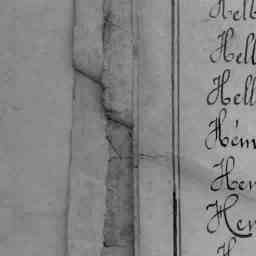 Helb
Hell
Hell
Hém
Hen
Her